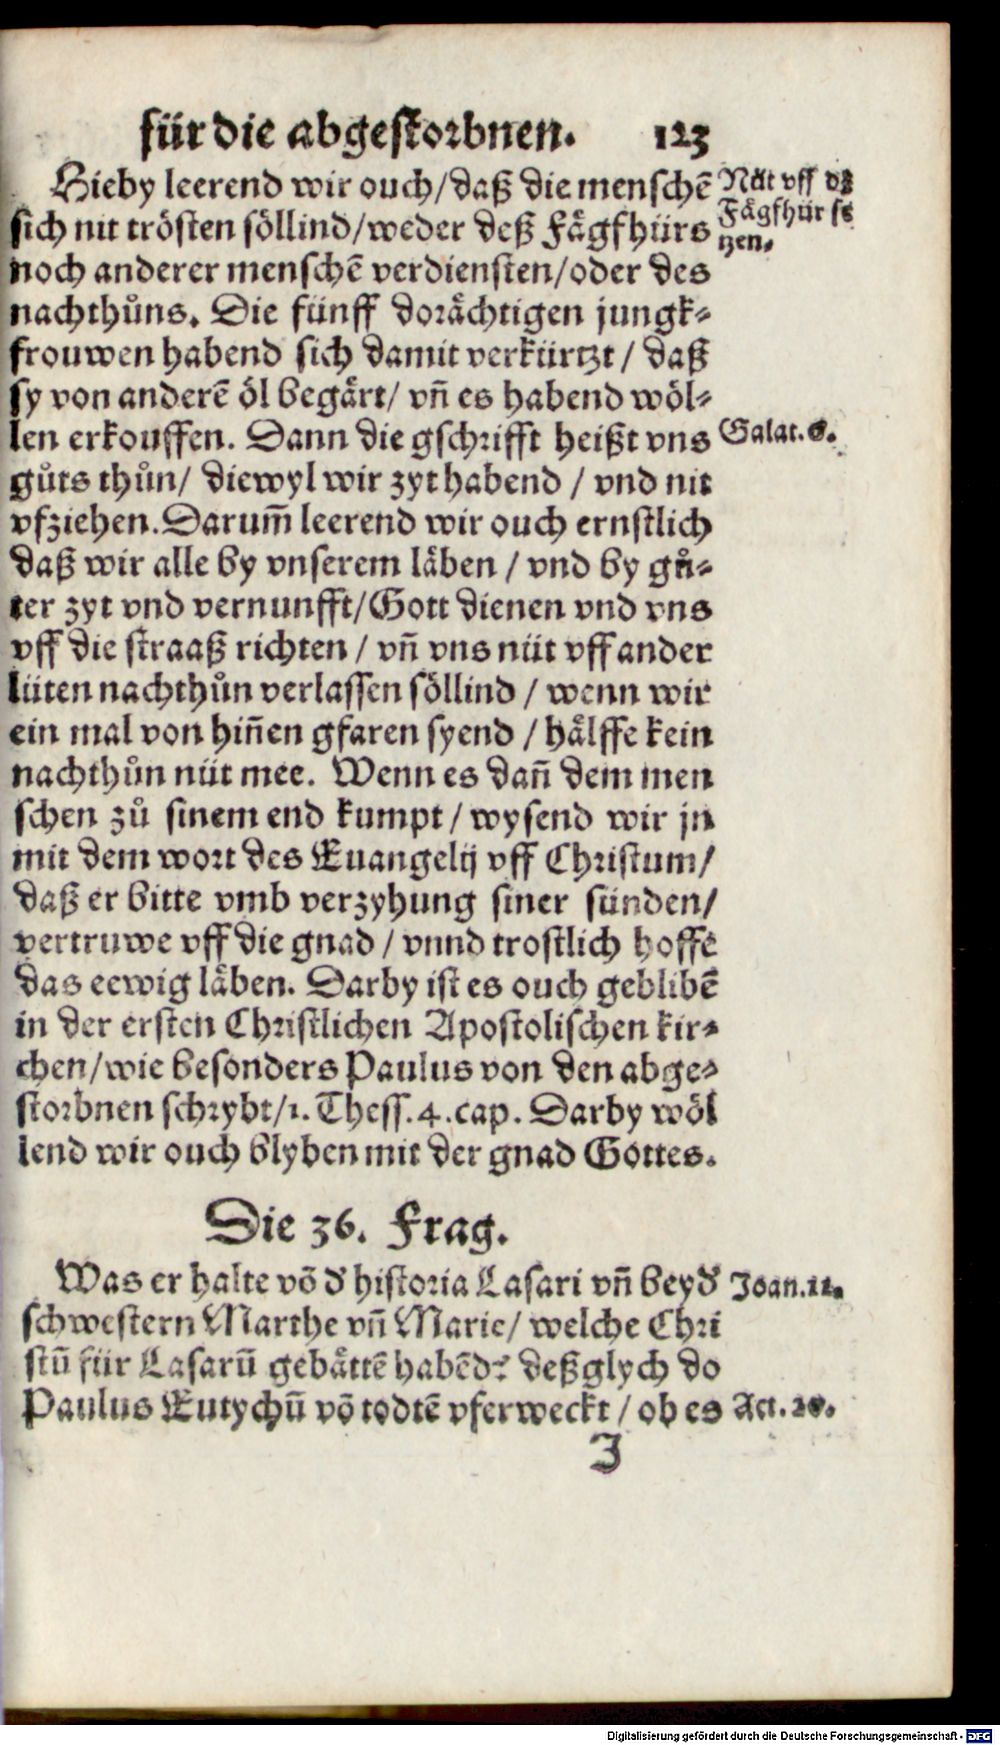 für die abgestorbnen. 123
Hieby leerend wir ouch/daß die menschē
sich nit trösten söllind/weder deß Fägfhürs
noch anderer menschē verdiensten/oder des
nachthůns. Die fünff dorächtigen jungk⸗
frouwen habend sich damit verkürtzt / daß
sy von anderē öl begärt/ vñ es habend wöl⸗
len erkouffen. Dann die gschrifft heißt vns
gůts thůn/ diewyl wir zyt habend / vnd nit
vfziehen. Darum̃ leerend wir ouch ernstlich
daß wir alle by vnserem läben / vnd by gů⸗
ter zyt vnd vernunfft/Gott dienen vnd vns
vff die straaß richten / vñ vns nüt vff ander
lüten nachthůn verlassen söllind / wenn wir
ein mal von hiñen gfaren syend / hälffe kein
nachthůn nüt mee. Wenn es dañ dem men
schen zů sinem end kumpt / wysend wir jn
mit dem wort des Euangelij vff Christum/
daß er bitte vmb verzyhung siner sünden/
vertruwe vff die gnad / vnnd trostlich hoffe
das eewig läben. Darby ist es ouch geblibē
in der ersten Christlichen Apostolischen kir⸗
chen/wie besonders Paulus von den abge⸗
storbnen schrybt/1. Thess. 4. cap. Darby wöl
lend wir ouch blyben mit der gnad Gottes.
Nüt vff dz
Fägfhür se
tzen.
Galat. 6.
Die 36. Frag.
Was er halte vō d' historia Lasari vñ beyd'
schwestern Marthe vñ Marie/ welche Chri
stū für Lasarū gebättē habēd? deßglych do
Paulus Eutychū vō todtē vferweckt / ob es
Joan. 11.
Act. 20.
J
Digitalisierung gefördert durch die Deutsche Forschungsgemeinschaft - DFG